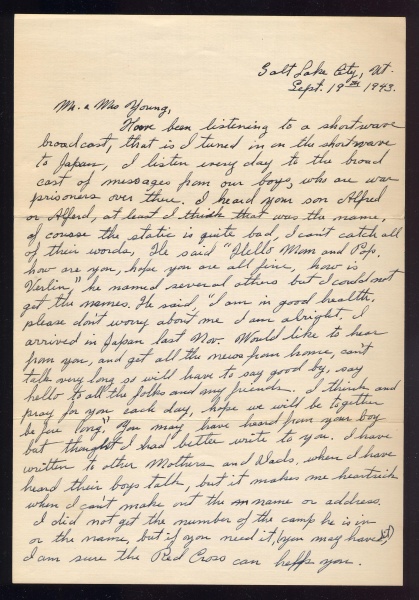 Salt Lake City, Ut.
Sept. 19th 1943.
Mr. & Mrs Young,
Have been listening to a shortwave
broadcast, that is I tuned in on the shortwave
to Japan, I listen every day to the broad
cast of messages from our boys, who are war
prisoners over there. I heard your son Alfred
or Alferd, at least I think that was the name,
of course the static is quite bad, I can't catch all
of their words, He said "Hello Mom and Pop,
how are you, hope you are all fine, how is
Verlin," he named several others but I could not
get the names. He said, "I am in good health,
please don't worry about me I am alright. I
arrived in Japan last Nov. Would like to hear
from you, and get all the news from home, can't
talk very long so will have to say good by, say
hello to all the folks and my friends. I think and
pray for you each day, hope we will be together
before long." You may have heard from your boy
but thought I had better write to you. I have
written to other Mothers and Dads, when I have
heard their boys talk, but it makes me heartsick
when I can't make out the name or address.
I did not get the number of the camp he is in
or the name, but if you need it, (you may have it)
I am sure the Red Cross can help you.